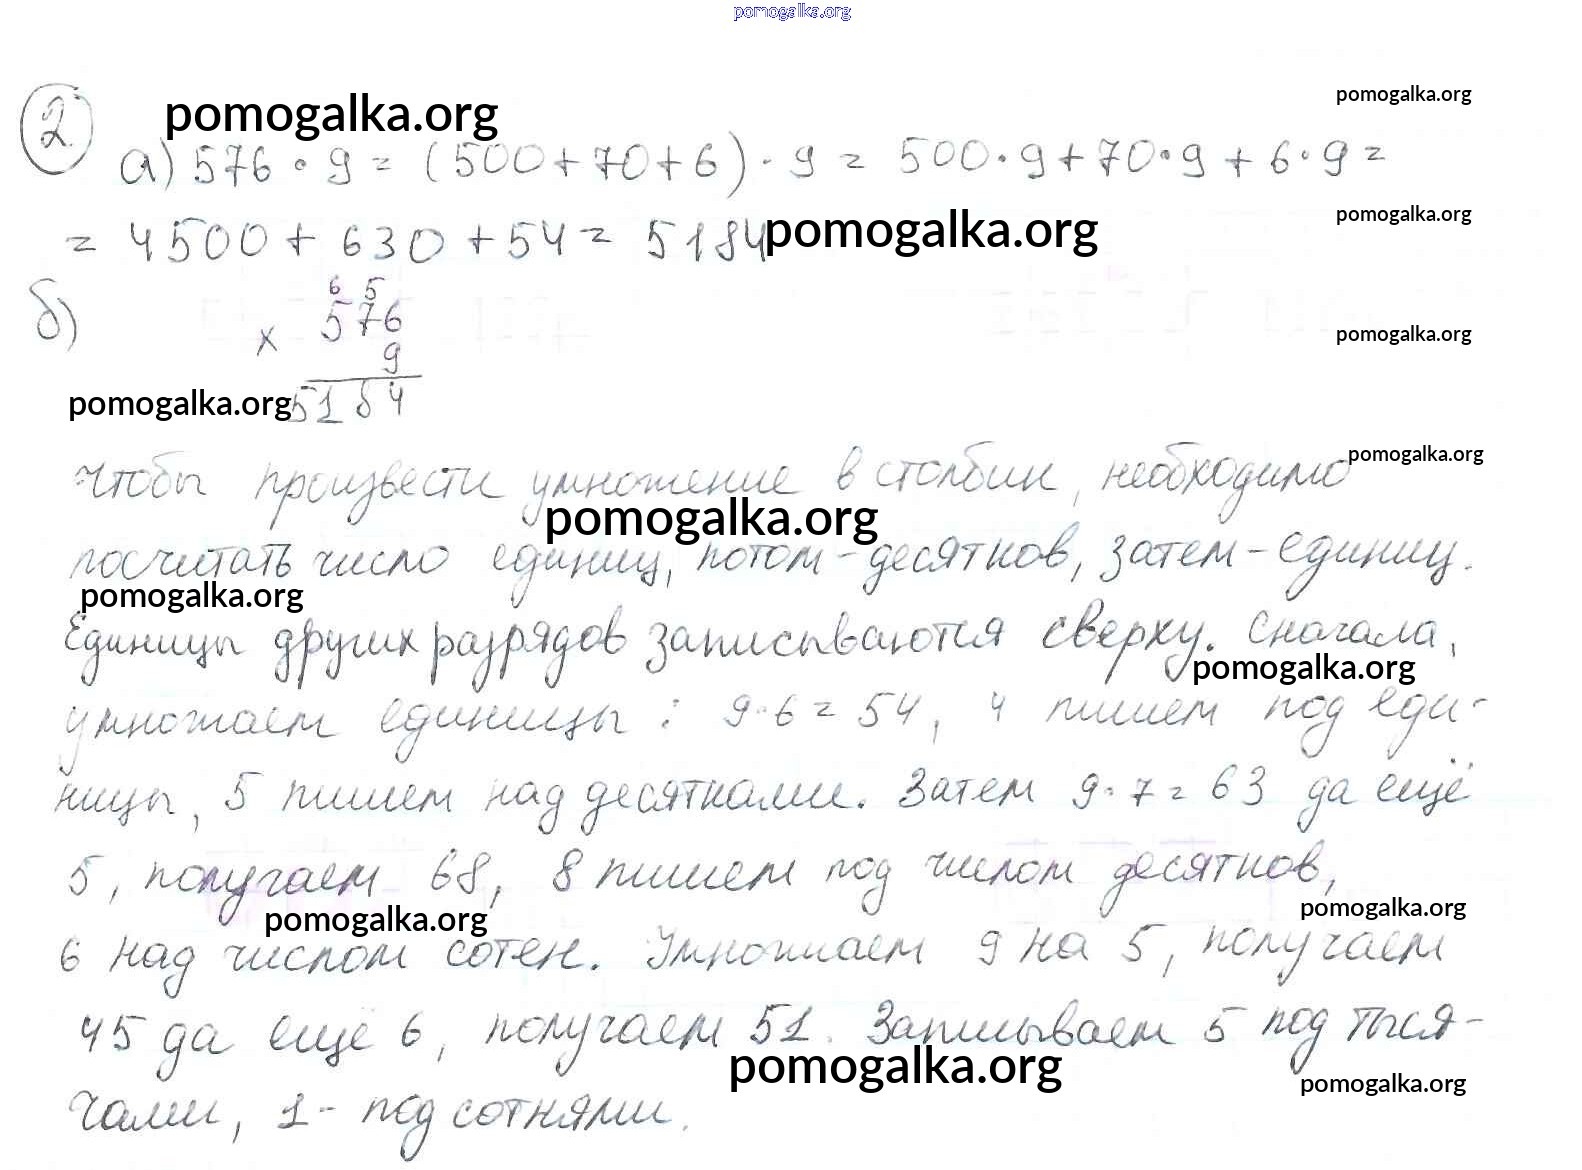 pomogalka.org
2. pomogalka.org pomogalka.org
а) 576 · 9 = (500+70+6) · 9 = 500·9+70·9+6·9=
= 4500+630+54= 5184 pomogalka.org pomogalka.org
б) 6 5
576 pomogalka.org
х
9
pomogalka.org 5184
Чтобы произвести умножение в столбик, необходимо pomogalka.org
pomogalka.org
посчитать число единиц, потом-десятков, затем-единиц.
pomogalka.org
Единицы других разрядов записываются сверху. Сначала,
pomogalka.org
умножаем единицы : 9·6=54, 4 пишем под еди-
ницы, 5 пишем над десятками. Затем 9·7=63 да ещё
5, получаем 68, 8 пишем под числом десятков,
pomogalka.org pomogalka.org
6 над числом сотен. Умножаем 9 на 5, получаем
45 да ещё 6, получаем 51. Записываем 5 под тыся-
pomogalka.org pomogalka.org
чами, 1- под сотнями.